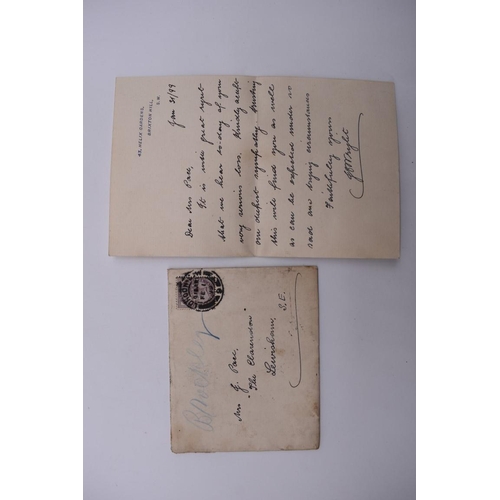 42, HELIX GARDENS,
BRIXTON HILL,
S.W.
Jan 31/99
Dear Mrs Pace,
It is with great regret
that we hear to-day of your
very serious loss. Kindly accept
our deepest sympathy trusting
this will find you as well
as can be expected under so
sad and trying circumstances
Faithfully yours
Mrs G. Pace,
"The Clarendon"
Lewisham,
S.E.